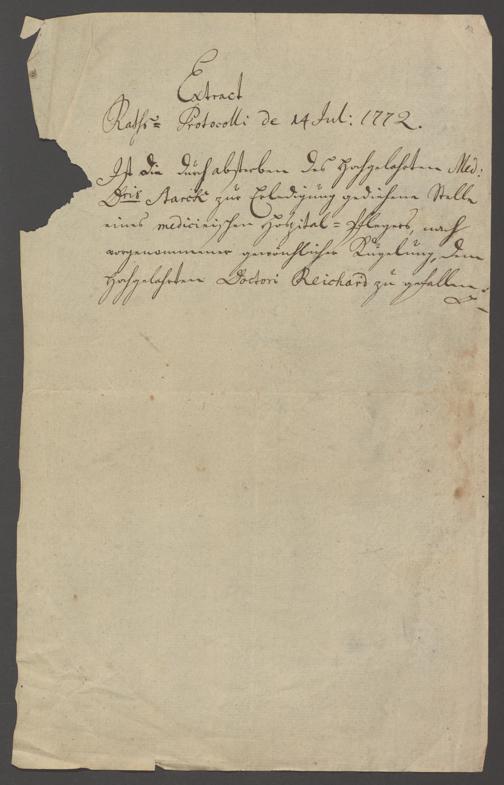 Extract
Raths= Protocolli de 14 Jul: 1772.
Ist die durch absterben des hochgelahrten Med:
Dris Starck zur Erledigung gediehene Stelle
eines medicinischen Hospital=Pflegers, nach
vorgenommener gewöhnlicher Kugelung, dem
hochgelahrten Doctori Reichard zu gefallen.